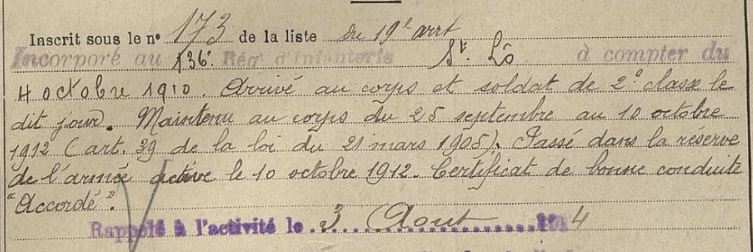 Inscrit sous le nº 173 de la liste du 19e arrt
Incorporé au 136e Rég. d'infanterie St Lô à compter du
4 octobre 1910. Arrivé au corps et soldat de 2e classe le
dit jour. Maintenu au corps du 25 septembre au 10 octobre
1912 (art. 39 de la loi du 21 mars 1905). Passé dans la réserve
de l'armée active le 10 octobre 1912. Certificat de bonne conduite
"Accordé".
Rappelé à l'activité le 3 Aout 1914